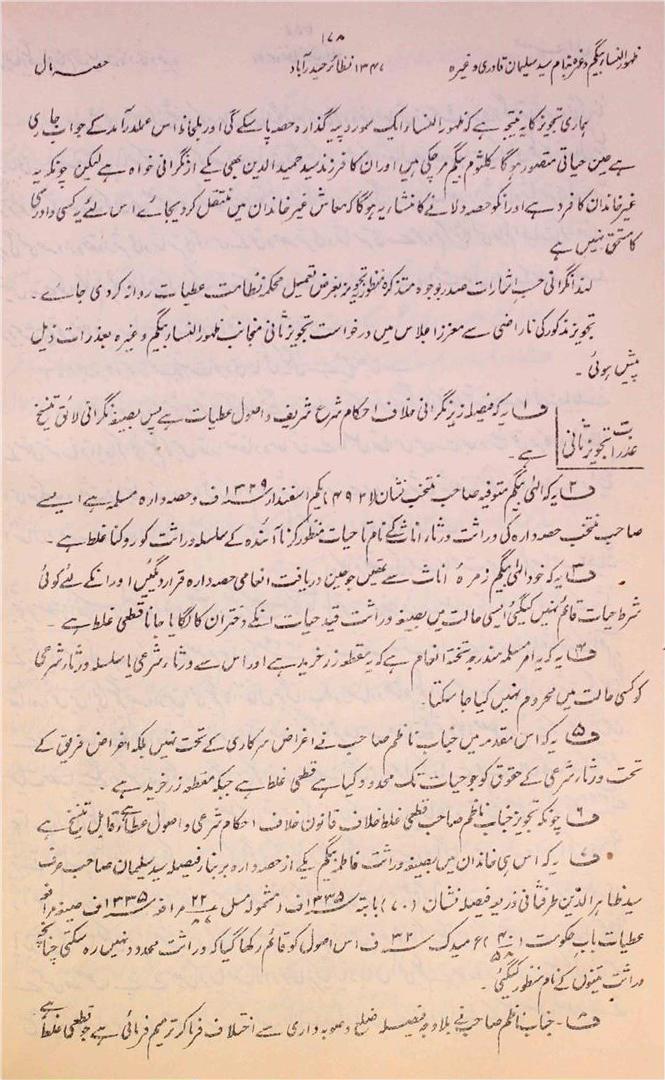 ۱۷۸
ظہور النسا بیگم وغیرہ بنام سید سلیمان قادری وغیرہ ۱۳۴۷ نظائر حیدرآباد حصہ مال
ہماری تجویز کا یہ نتیجہ ہے کہ ظہور النساء ایک سو روپیہ گذارہ حصہ پا سکے گی اور بلحاظ اس عملدرآمد کے جواب جاری
ہے حین حیاتی متصور ہوگا۔ کلثوم بیگم مرچکی ہیں اور ان کا فرزند سید حمید الدین بھی یکے از نگرانی خواہ ہے لیکن چونکہ یہ
غیر خاندان کا فرد ہے اور انکو حصہ دلانے کا منشاء یہ ہوگا کہ معاش غیر خاندان میں منتقل کردیجائے اس لئے یہ کسی دادرسی
کا مستحق نہیں ہے
لہذا نگرانی حسب اشارات صدر بوجوہ متذکرہ منظور تجویز بغرض تعمیل محکمہ نظامت عطیات روانہ کردی جاے۔
تجویز مذکور کی ناراضی سے معزز اجلاس میں درخواست تجویز ثانی منجانب ظہور النساء بیگم وغیرہ بعذرات ذیل
پیش ہوئی۔
عذرات تجویز ثانی
ف۱ یہ کہ فیصلہ زیر نگرانی خلاف احکام شرع شریف و اصول عطیات ہے پس بصیغہ نگرانی لائق تنسیخ
ہے۔
ف۲ یہ کہ الٰہی بیگم متوفیہ صاحب منتخب نشان ۴۹۲ یکم اسفندار ۱۳۲۹ف و حصہ دارہ مسلمہ ہے ایسے
صاحب منتخب حصہ دارہ کی وراثت ورثاء اناث کے نام تا حیات منظور کرنا آئندہ کے سلسلہ وراثت کو روکنا غلط ہے۔
ف۳ یہ کہ خود الٰہی بیگم زمرۂ اناث سے تھیں جو حین دریافت انعامی حصہ دارہ قرار دیگئیں اور انکے لئے کوئی
شرط حیات قائم نہیں کیگئی ایسی حالت میں بصیغہ وراثت قید حیات انکے دختران کا لگایا جانا قطعی غلط ہے۔
ف۴ یہ کہ یہ امر مسلمہ مندرجہ تختہ انعام ہے کہ یہ مقطعہ زر خرید ہے اور اس سے ورثاء شرعی یا سلسلہ ورثاء شرعی
کو کسی حالت میں محروم نہیں کیا جا سکتا۔
ف۵ یہ کہ اس مقدمہ میں جناب ناظم صاحب نے اغراض سرکاری کے تحت نہیں بلکہ اغراض فریق کے
تحت ورثاء شرعی کے حقوق کو جو حیات تک محدود کیا ہے قطعی غلط ہے جبکہ مقطعہ زر خرید ہے۔
ف۶ چونکہ تجویز جناب ناظم صاحب قطعی غلط خلاف قانون خلاف احکام شرعی و اصول عطایا قابل تنسیخ ہے
ف۷ یہ کہ اس ہی خاندان میں بصیغہ وراثت فاطمہ بیگم یکے از حصہ دارہ بر بناء فیصلہ سید سلیمان صاحب عرف
سید ظاہر الدین طرفثانی ذریعہ فیصلہ نشان (۷۰) بابتہ ۱۳۳۵ف مشمولہ مسل ۲۲ مرافعہ ۱۳۳۵ف صیغہ مرافعہ
عطیات باب حکومت (۴۰/۵۸) ۶ میدک ۳۲ف اس اصول کو قائم رکھا گیا کہ وراثت محدود نہیں رہ سکتی چنانچہ
وراثت تینوں کے نام منظور کیگئی۔
ف۸۔ جناب ناظم صاحب نے بلا وجہ فیصلہ ضلع و صوبہ داری سے اختلاف فرما کر ترمیم فرمائی ہے جو قطعی غلط ہے